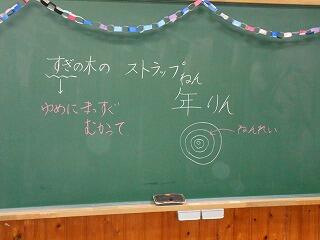 すぎの木の ストラップ
ねん
年りん
ゆめに まっすぐ
むかって
ねんれい